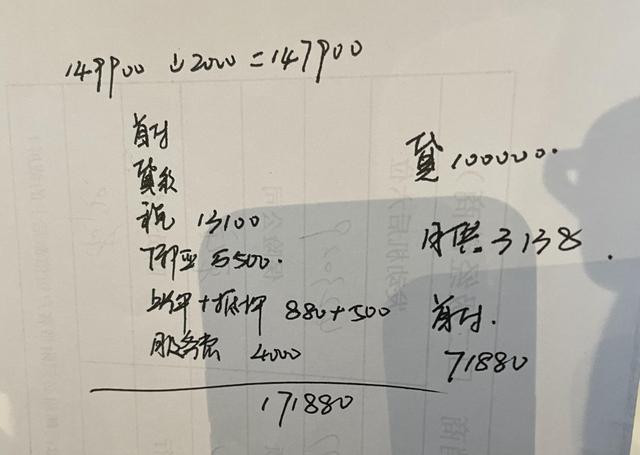 149900 ↓2000 = 147900
首付
贷款
税 13100
5500.
上牌+抵押 880+500
服务费 4000
171880
贷 100000.
月供 3138.
首付.
71880